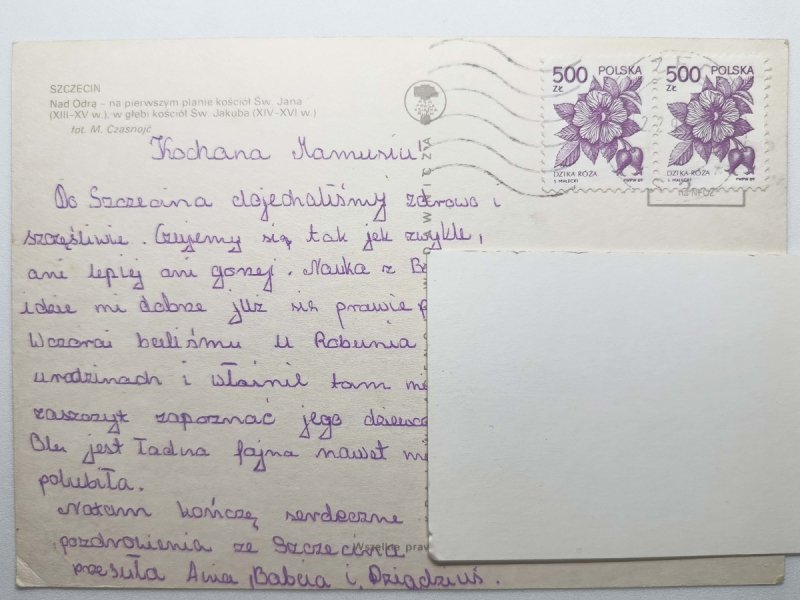 SZCZECIN
Nad Odrą – na pierwszym planie kościół Św. Jana
(XIII–XV w.), w głębi kościół Św. Jakuba (XIV–XVI w.)
fot. M. Czasnojć
500 ZŁ POLSKA
DZIKA RÓŻA
S. MAŁECKI
PWPW 89
500 ZŁ POLSKA
DZIKA RÓŻA
S. MAŁECKI
PWPW 89
Kochana Mamusiu!
Do Szczecina dojechaliśmy zdrowo i
szczęśliwie. Czujemy się tak jak zwykle,
ani lepiej ani gorzej. Nauka z
idzie mi dobrze już się prawie
Wczoraj byliśmy u Robunia
urodzinach i właśnie tam
zaszczyt zapoznać jego
jest ładna fajna nawet
polubiła.
Natam kończę serdeczne
pozdrowienia ze Szczecina
przesyła Ania, Babcia i Dziadziuś.
Wszelkie